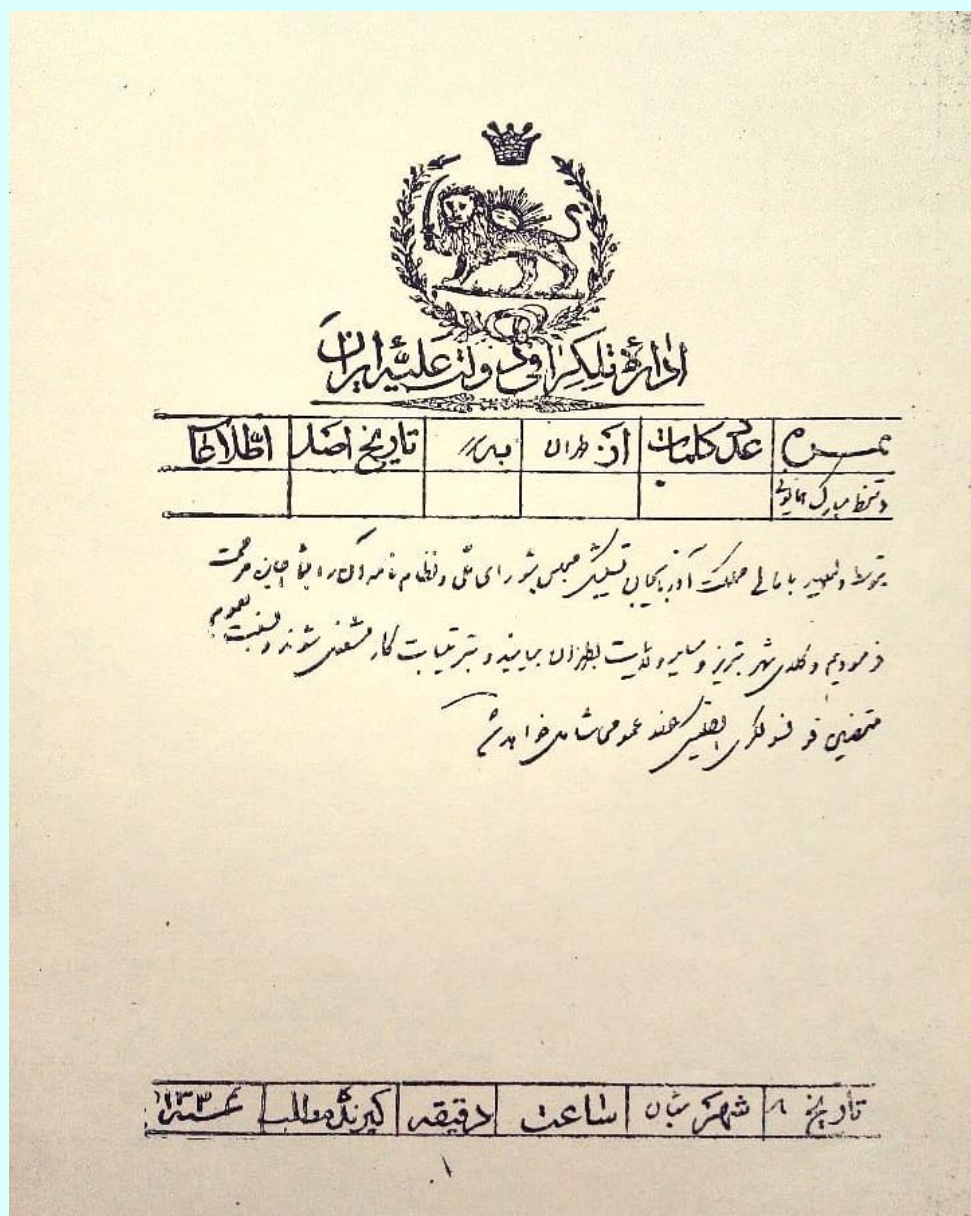 ادارهٔ تلیکرافی دولت علیّهٔ ایران
نمره عدد کلمات از طهران به تبریز تاریخ اصل اطلاعات
دستخط مبارک همایونی
توسط ولیعهد باهالی مملکت آذربایجان تشکیل مجلس شورای ملی و نظام نامه آن را امضا مرحمت
فرمودیم وکلای شهر تبریز و سایر ولایت بطهران بیایند و بترتیبات کار مشغول شوند و نسبت بعموم
متحصنین قونسولگری انگلیس عفو عمومی شامل خواهد شد
تاریخ ۸ شهر شعبان ساعت دقیقه گیرنده مطالب سنه ۱۳۳
۱